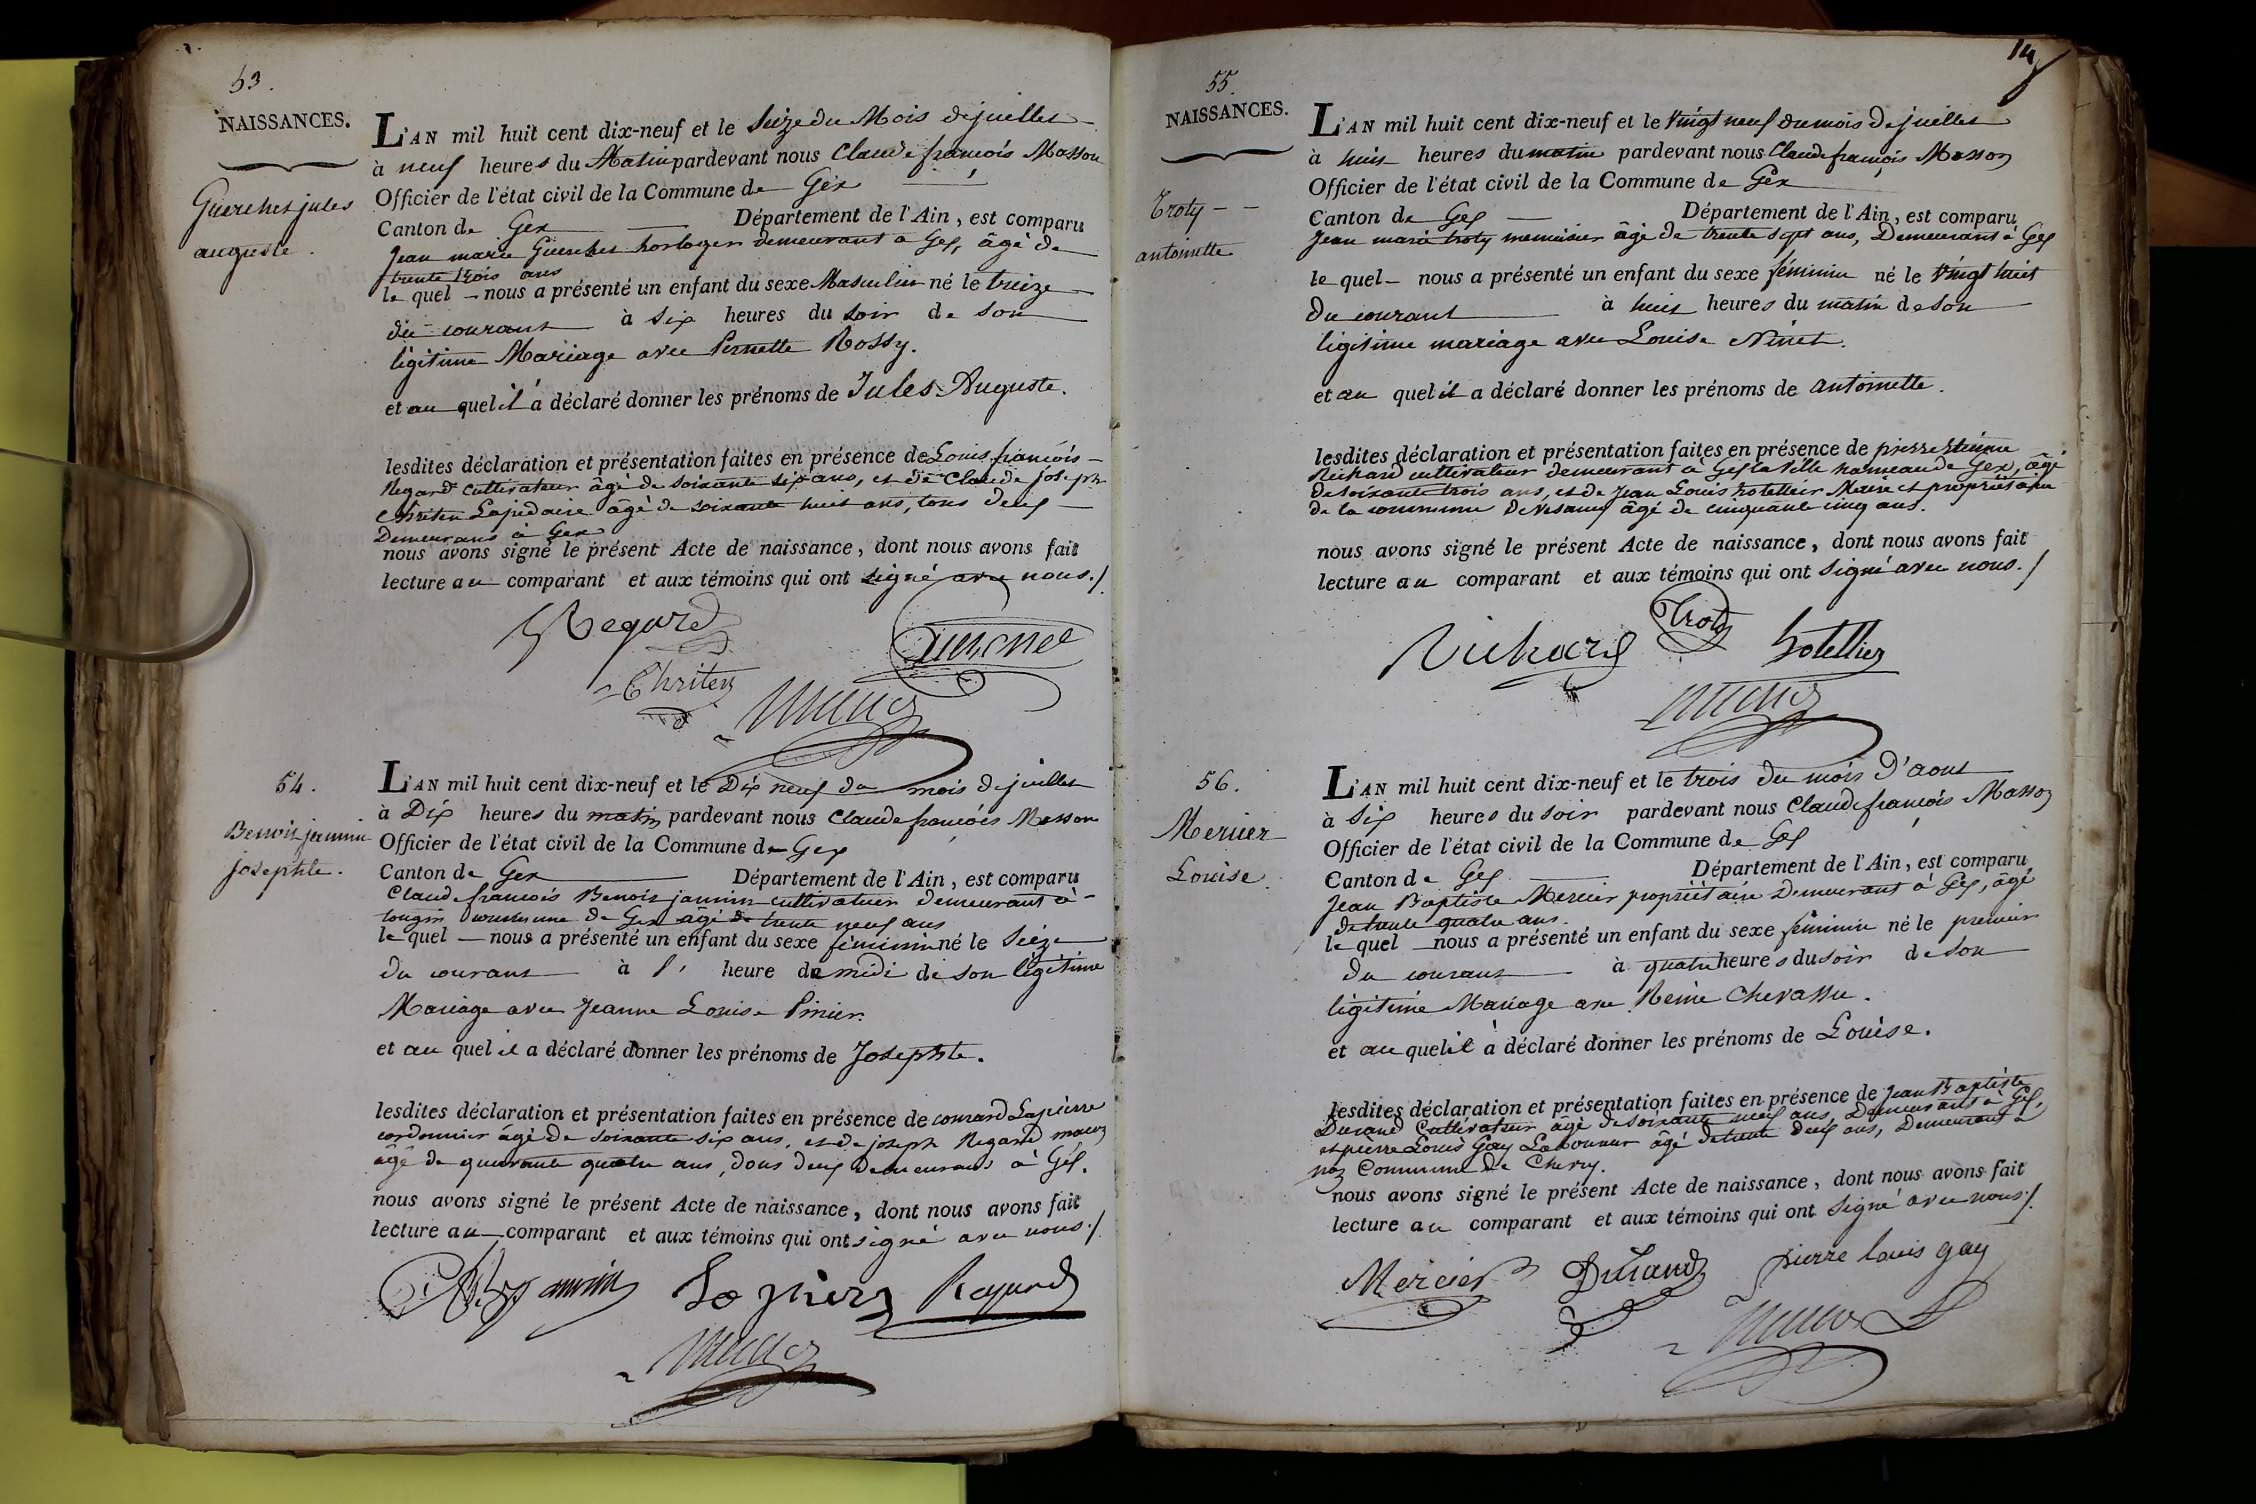 53.
NAISSANCES.
Guerchet jules
auguste.
L'AN mil huit cent dix-neuf et le Seize du Mois de juillet
à neuf heures du Matin pardevant nous Claude françois Masson
Officier de l'état civil de la Commune de Gex
Canton de Gex Département de l'Ain, est comparu
Jean marie Guerchet horloger demeurant à Gex, âgé de
trente trois ans
le quel nous a présenté un enfant du sexe Masculin né le treize
du courant à six heures du soir de son
légitime Mariage avec Pernette Rossy.
et au quel il a déclaré donner les prénoms de Jules Auguste.
lesdites déclaration et présentation faites en présence de Louis françois
Regard cultivateur âgé de soixante six ans, et de Claude joseph
Chriten Lapidaire âgé de soixante huit ans, tous deux
Demeurans à Gex
nous avons signé le présent Acte de naissance, dont nous avons fait
lecture au comparant et aux témoins qui ont signé avec nous./.
Regard
Chriten
54.
Benoit jannin
josephte.
L'AN mil huit cent dix-neuf et le Dix neuf du mois de juillet
à Dix heures du matin pardevant nous Claude françois Masson
Officier de l'état civil de la Commune de Gex
Canton de Gex Département de l'Ain, est comparu
Claude francois Benoit jannin cultivateur demeurant à
tougin commune de Gex âgé de trente neuf ans
le quel nous a présenté un enfant du sexe féminin né le Seize
du courant à l' heure de midi de son légitime
Mariage avec Jeanne Louise Pinier.
et au quel il a déclaré donner les prénoms de Josephte.
lesdites déclaration et présentation faites en présence de conrard Lapierre
cordonnier âgé de soixante six ans, et de joseph Regard macon
âgé de quarante quatre ans, tous deux Demeurans à Gex.
nous avons signé le présent Acte de naissance, dont nous avons fait
lecture au comparant et aux témoins qui ont signé avec nous./.
Regard
14
55.
NAISSANCES.
Troty
antoinette
L'AN mil huit cent dix-neuf et le Vingt neuf du mois de juillet
à huit heures du matin pardevant nous Claude françois Masson
Officier de l'état civil de la Commune de Gex
Canton de Gex Département de l'Ain, est comparu
Jean marie troty menuisier âgé de trente sept ans, Demeurant à Gex
le quel nous a présenté un enfant du sexe féminin né le Vingt huit
du courant à huit heures du matin de son
légitime mariage avec Louise Ninet.
et au quel il a déclaré donner les prénoms de antoinette.
lesdites déclaration et présentation faites en présence de pierre Etienne
Richard cultivateur demeurant à Gex la Ville hameau de Gex, âgé
de soixante trois ans, et de Jean Louis hotellier Maire et propriétaire
de la commune de Vesancy âgé de cinquante cinq ans.
nous avons signé le présent Acte de naissance, dont nous avons fait
lecture au comparant et aux témoins qui ont signé avec nous./
Richard Troty hotellier
56.
Mercier
Louise.
L'AN mil huit cent dix-neuf et le trois du mois d'aout
à six heures du soir pardevant nous Claude françois Masson
Officier de l'état civil de la Commune de Gex
Canton de Gex Département de l'Ain, est comparu
Jean Baptiste Mercier propriétaire Demeurant à Gex, âgé
de trente quatre ans.
le quel nous a présenté un enfant du sexe féminin né le premier
du courant à quatre heures du soir de son
légitime Mariage avec Reine Chevassu.
et au quel il a déclaré donner les prénoms de Louise.
lesdites déclaration et présentation faites en présence de Jean Baptiste
Durand Cultivateur âgé de soixante neuf ans, Demeurant à Gex,
et pierre Louis Gay Laboureur âgé de trente deux ans, Demeurant à
Commune de Chevry.
nous avons signé le présent Acte de naissance, dont nous avons fait
lecture au comparant et aux témoins qui ont signé avec nous./.
Mercier Durand pierre louis gay